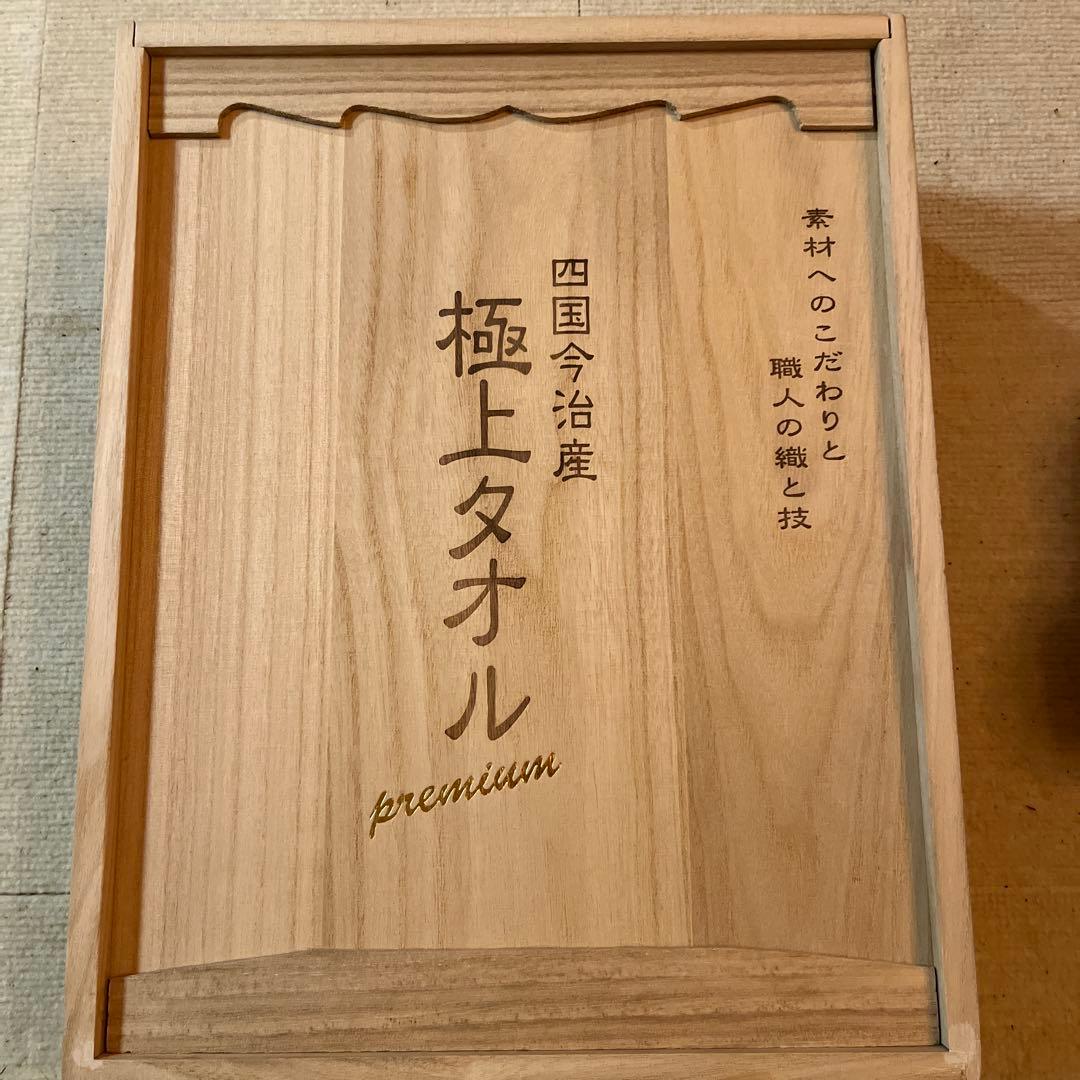 素材へのこだわりと
職人の織と技
四国今治産
極上タオル
premium